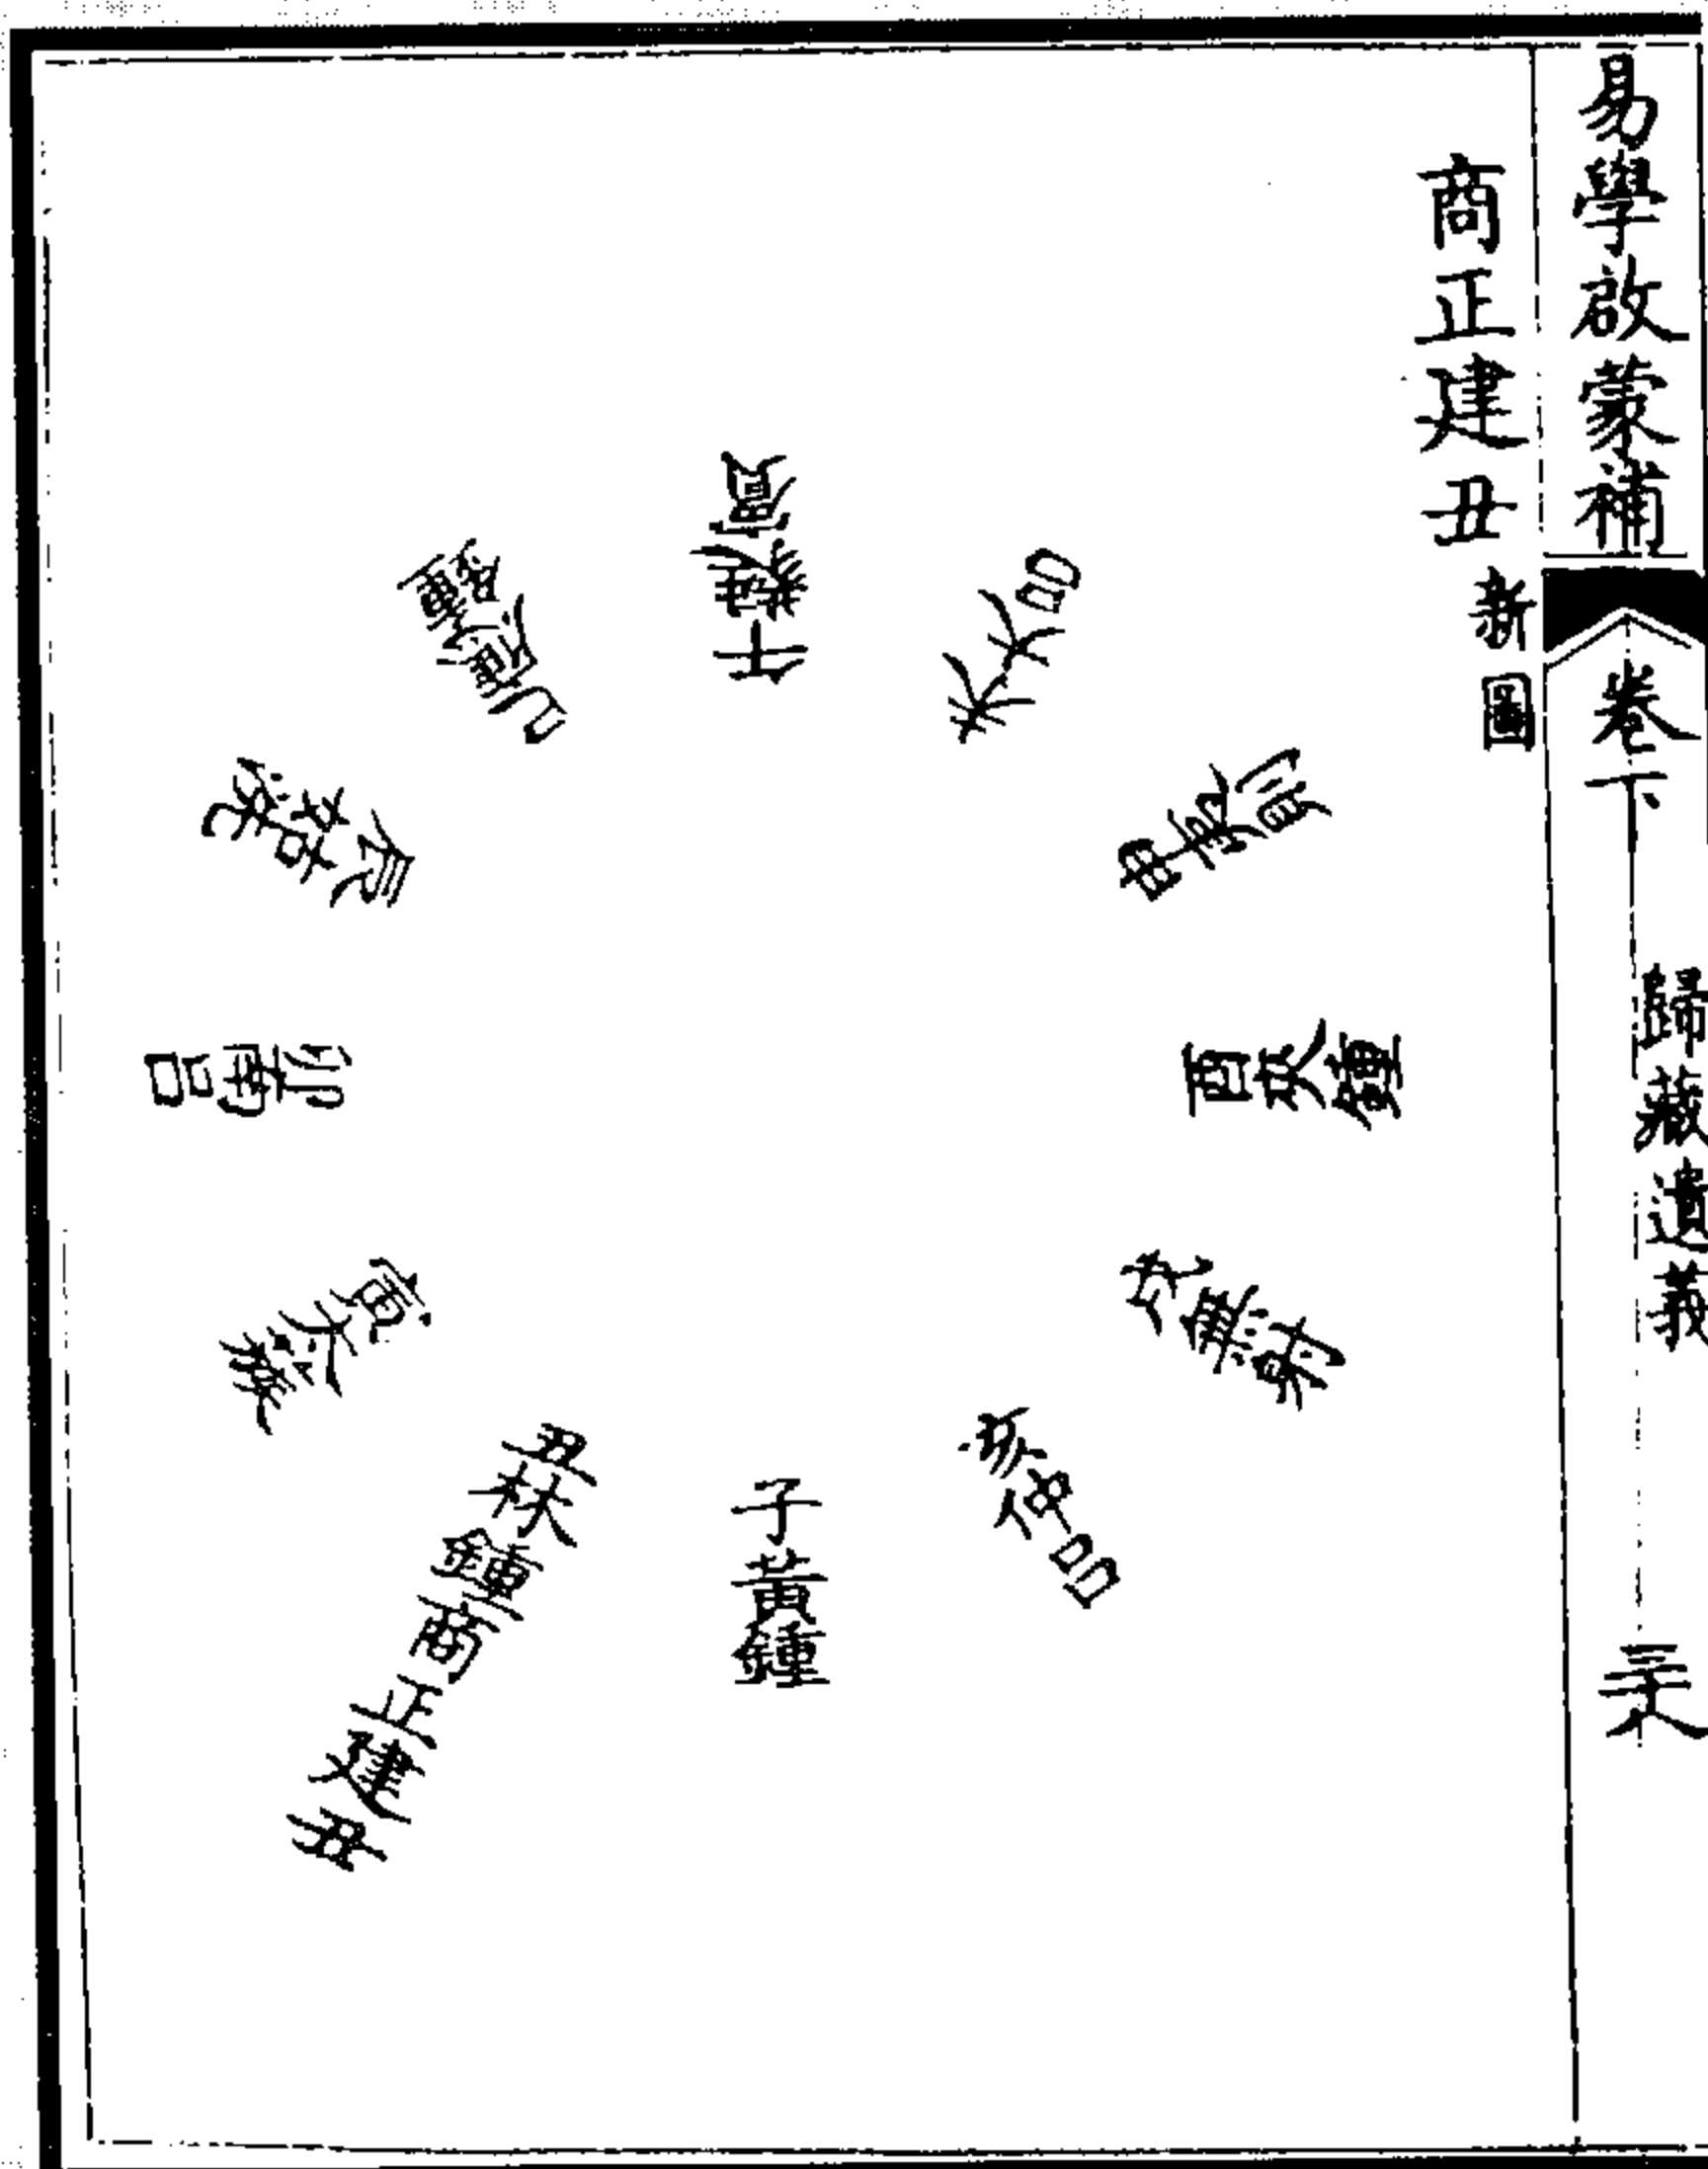 易學啟蒙補 卷下 歸藏遺義 三十八
商正建丑 新圖
子黃鍾
丑林鍾商正建丑
寅太簇
卯南呂
辰姑洗
巳應鍾
午蕤賓
未大呂
申夷則
酉夾鍾
戌無射
亥仲呂